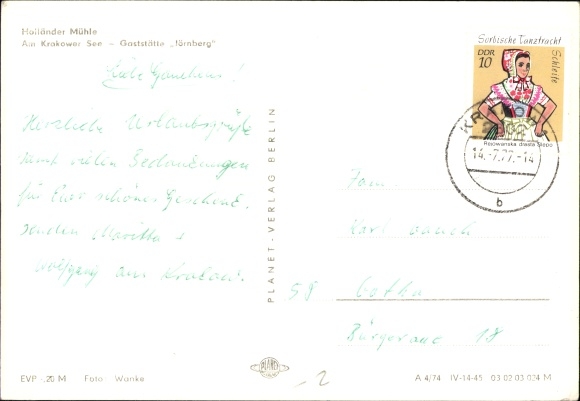 Holländer Mühle
Am Krakower See – Gaststätte „Jörnberg"
Liebe
Herzliche Urlaubsgrüße
samt vielen Bedankungen
für Euer schönes Geschenk,
senden Maritta +
Wolfgang aus Krakow.
PLANET-VERLAG BERLIN
Sorbische Tanztracht
Schleife
DDR
10
14.-7.77.-14
b
Fam.
Karl
58 Gotha
Bürgeraue 18
PLANET
EVP -,20 M Foto: Wanke
A 4/74 IV-14-45 03 02 03 024 M
2